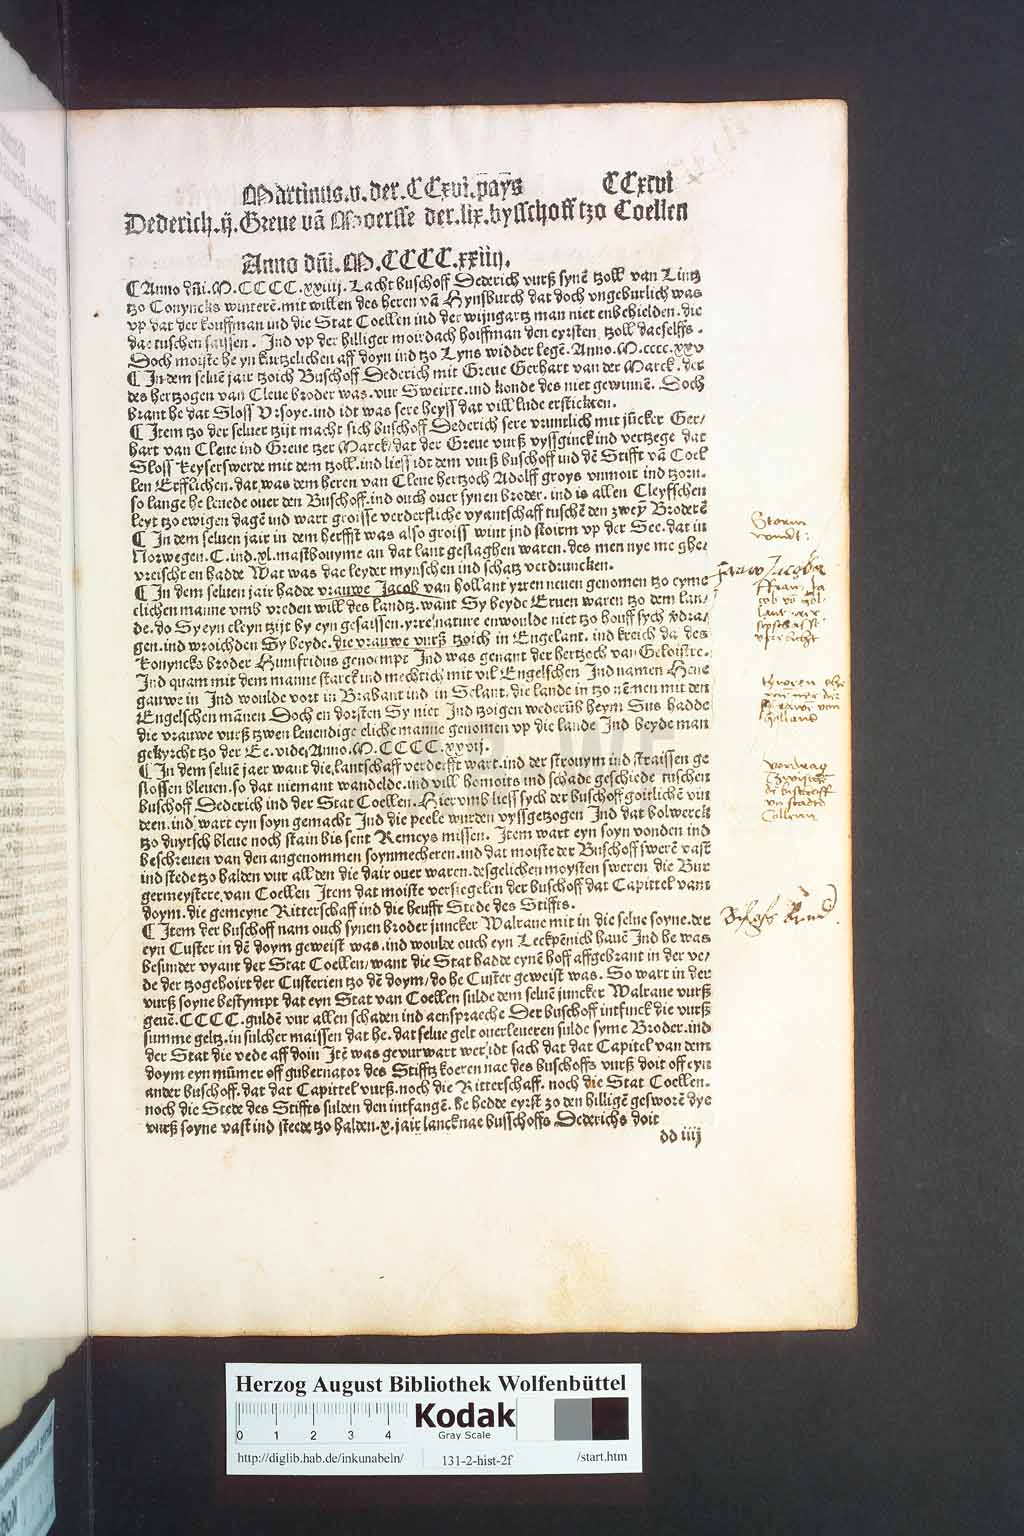 Martinus.v. der. CCxvi. pays CCxcvi
Dederich.ij. Greue vā Moersse der. lix. bysschoff tzo Coellen
Anno dñi. M. CCCC. xxiiij.
¶ Anno dñi. M. CCCC. xxiiij. Lacht buschoff Dederich vurß synē tzoll van Lintz
tzo Conyncks winterē. mit willen des heren vā Hynsburch dat doch vngeburlich was
vp dat der kouffman ind die Stat Coellen ind der wijngartz man niet enbehielden. die
dartuschen saissen. Ind vp der hilliger moirdach houffman den eyrsten tzoll daeselffs.
Doch moiste he yn kurtzelichen aff doyn ind tzo Lyns widder legē. Anno. M. cccc. xxv
¶ In dem seluē jair tzoich Buschoff Dederich mit Greue Gerhart van der Marck. der
des hertzogen van Cleue broder was. vur Sweirte. ind konde des niet gewinnē. Doch
brant he dat Sloss Vrsoye. ind idt was sere heyss dat vill lude erstickten.
¶ Item tzo der seluer tzijt macht sich buschoff Dederich sere vruntlich mit jūcker Ger/
hart van Cleue ind Greue tzer Marck/ dat der Greue vurß vyssginck ind vertzege dat
Sloss Keyserswerde mit dem tzoll. ind liess idt dem vurß buschoff ind dē Stifft vā Coel
len Erfflichen. dat was dem heren van Cleue hertzoch Adolff groys vnmoit ind tzorn.
so lange he leuede ouer den Buschoff. ind ouch ouer synen broder. ind is allen Cleyfschen
leyt tzo ewigen dagē ind wart groisse verderfliche vyantschaff tuschē den zwey Broderē
¶ In dem seluen jair in dem herffst was also groiss wint ind stoirm vp der See. dat in
Norwegen. C. ind. xl. mastbouyme an dat lant geslaghen waren. des men nye me ghe/
vreischt en hadde Wat was dae leyder mynschen ind schatz verdruncken.
¶ In dem seluen jair hadde vrauwe Jacob van hollant yrren neuen genomen tzo eyme
elichen manne vmb vreden will des landtz. want Sy beyde Eruen waren tzo dem lan/
de. do Sy eyn cleyn tzijt by eyn gesaissen. yrre nature enwoulde niet tzo houff sych v̄dra/
gen. ind wroichden Sy beyde. die vrauwe vurß tzoich in Engelant. ind kreich da des
Konyncks broder Humfridus genoempt Ind was genant der hertzoch van Gelouistre.
Ind quam mit dem manne starck ind mechtich mit vil Engelschen Ind namen Hene
gauwe in Ind woulde vort in Brabant ind in Selant. die lande in tzo nēmen mit den
Engelschen mānen Doch en dorsten Sy niet Ind tzoigen wederūb heym Sus hadde
die vrauwe vurß tzwen leuendige eliche manne genomen vp die lande Ind beyde man
gekyrcht tzo der Ee. vide, Anno. M. CCCC. xxvij.
¶ In dem seluē jaer want die lantschaff verderfft wart. ind der strouym ind straissen ge
slossen bleuen. so dat niemant wandelde. ind vill homoits ind schade geschiede tuschen
buschoff Dederich ind der Stat Coellen. Hiervmb liess sych der buschoff goitlichē vin
deen. ind wart eyn soyn gemacht Ind die peele wurden vyssgetzogen Ind dat bolwerck
tzo duytsch bleue noch stain bis sent Remeys missen. Item wart eyn soyn vonden ind
beschreuen van den angenommen soynmecheren. ind dat moiste der Buschoff swerē vast
ind stede tzo halden vur all den die dair ouer waren. desgelichen moysten sweren die Bur
germeystere van Coellen Item dat moiste versiegelen der buschoff dat Capittel vam
doym. die gemeyne Ritterschaff ind die heufft Stede des Stiffts.
¶ Item der buschoff nam ouch synen broder juncker Walraue mit in die selue soyne. der
eyn Custer in dē doym geweist was. ind woulde ouch eyn Leckpēnich hauē Ind he was
besunder vyant der Stat Coellen/ want die Stat hadde eynē hoff affgebrant in der ve/
de der tzogehoirt der Custerien tzo dē doym/ do he Custer geweist was. So wart in der
vurß soyne bestympt dat eyn Stat van Coellen sulde dem seluē juncker Walraue vurß
geuē. CCCC. guldē vur allen schaden ind aenspraeche Der buschoff intfinck die vurß
summe geltz. in sulcher maissen dat he. dat selue gelt ouerleueren sulde syme Broder. ind
der Stat die vede aff doin Itē was gevurwart wer, idt sach dat dat Capitel van dem
doym eyn mūmer off gubernator des Stifftz koeren nae des buschoffs vurß doit off eyn
ander buschoff. dat dat Capittel vurß. noch die Ritterschaff. noch die Stat Coellen.
noch die Stede des Stiffts sulden den intfangē. he hedde eyrst zo den hilligē gesworē dye
vurß soyne vast ind steede tzo halden. x. jair lanck nae busschoffs Dederichs doit
dd iiij
Storm
windt:
fraw Jacoba
Herzog August Bibliothek Wolfenbüttel
0 1 2 3 4
Kodak
Gray Scale
http://diglib.hab.de/inkunabeln/ 131-2-hist-2f /start.htm